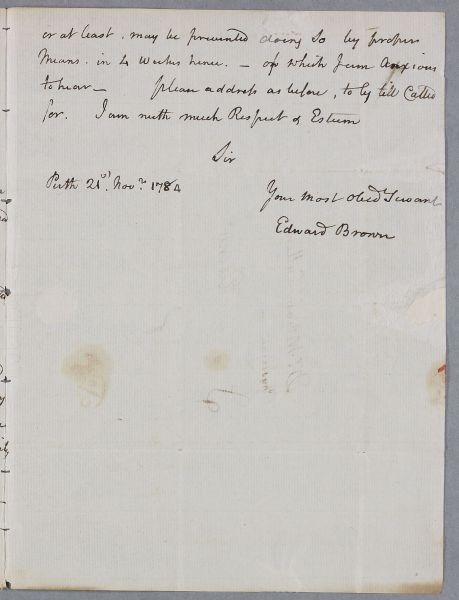 or at least, may be prevented doing so by proper
Means. in 4 Weeks hence. – of which I am Anxious
to hear – please address as before, to ly till Called
for. I am with much Respect & Esteem
Sir
Perth 21st. Novr. 1784
Your most Obedt Servant
Edward Brown